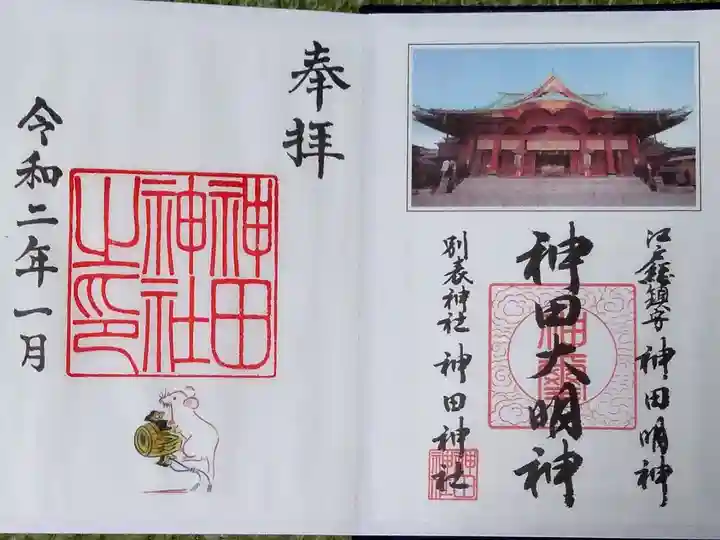 江戸総鎮守 神田明神
神田大明神
別表神社 神田神社
神田
神社
奉拝
神田
神社
之印
令和二年一月